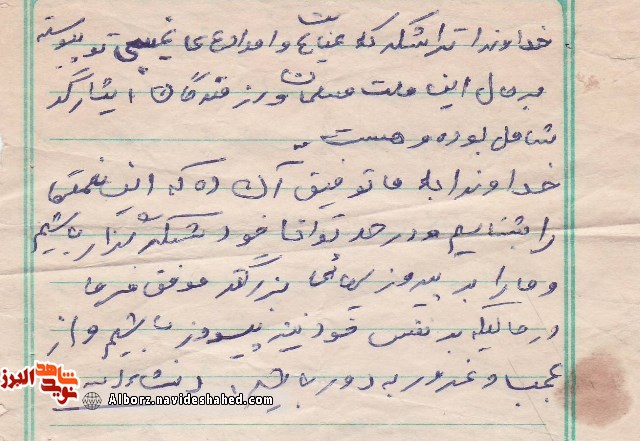 خداوندا ترا شکر که عنایات و امدادهای غیبی تو پیوسته
بر حال این ملت مسلمان و رزمندگان ایثارگر
شامل بوده و هست.
خداوندا به ما توفیق آن ده که این نعمتها
را بشناسیم و در حد توان خود شکرگزار باشیم
و ما را بر پیروزیهای بزرگتر موفق فرما
در حالیکه بر نفس خود نیز پیروز باشیم و از
عجب و غرور به دور باشیم. انشاءالله
شاهد
نوید
البرز
Alborz.navideshahed.com